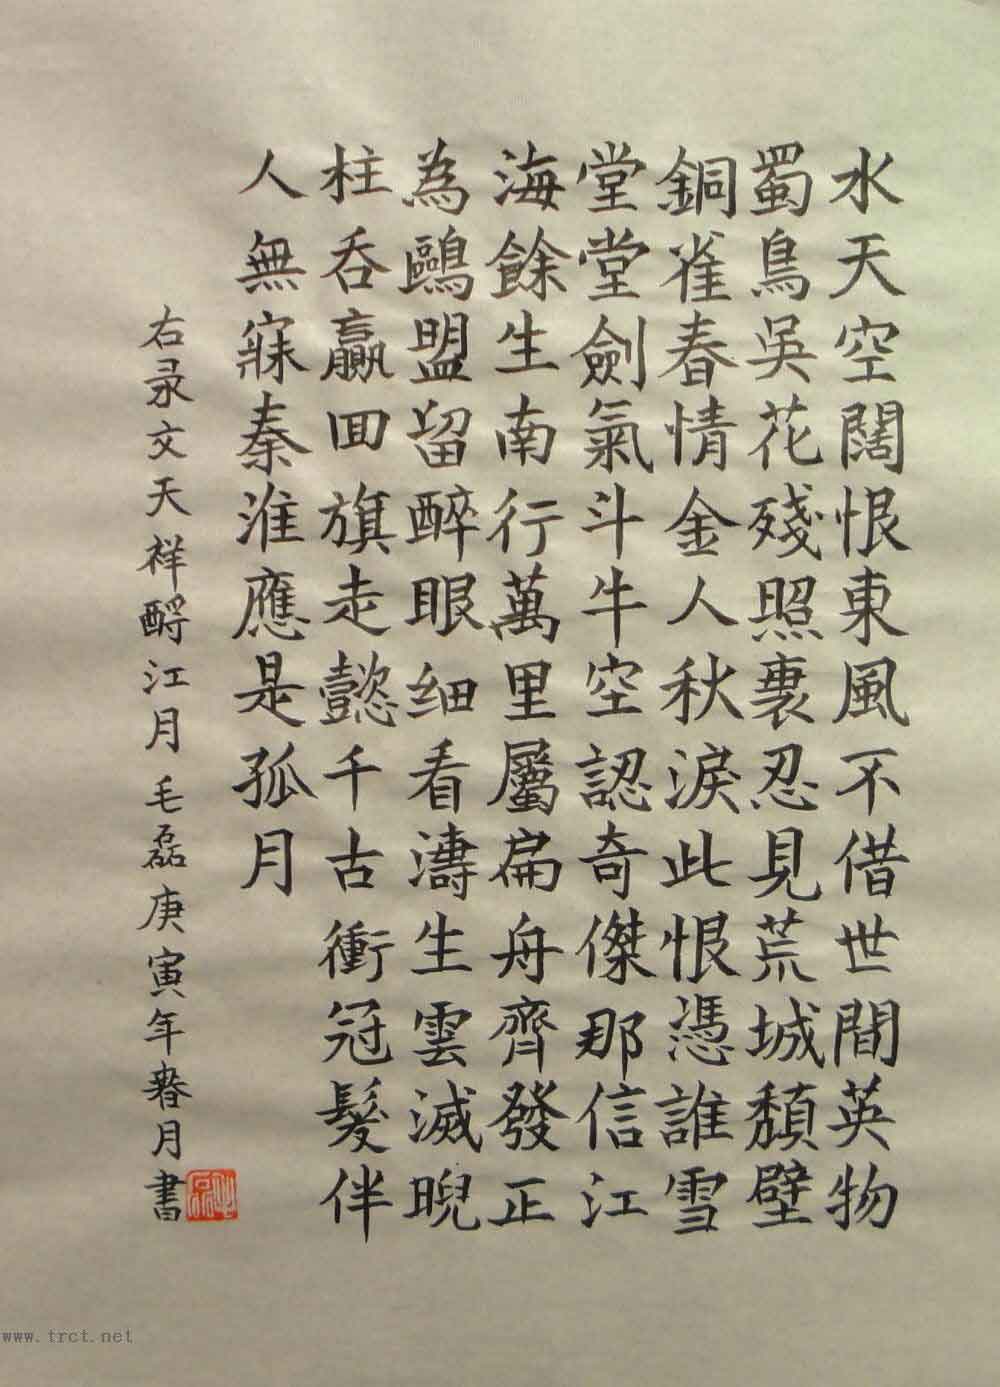 水天空闊恨東風不借世間英物
蜀鳥吳花殘照裏忍見荒城頹壁
銅雀春情金人秋淚此恨憑誰雪
堂堂劍氣斗牛空認奇傑那信江
海餘生南行萬里屬扁舟齊發正
為鷗盟留醉眼细看濤生雲滅睨
柱吞贏回旗走懿千古衝冠髮伴
人無寐秦淮應是孤月
右录文天祥酹江月毛磊庚寅年春月書
www.trct.net